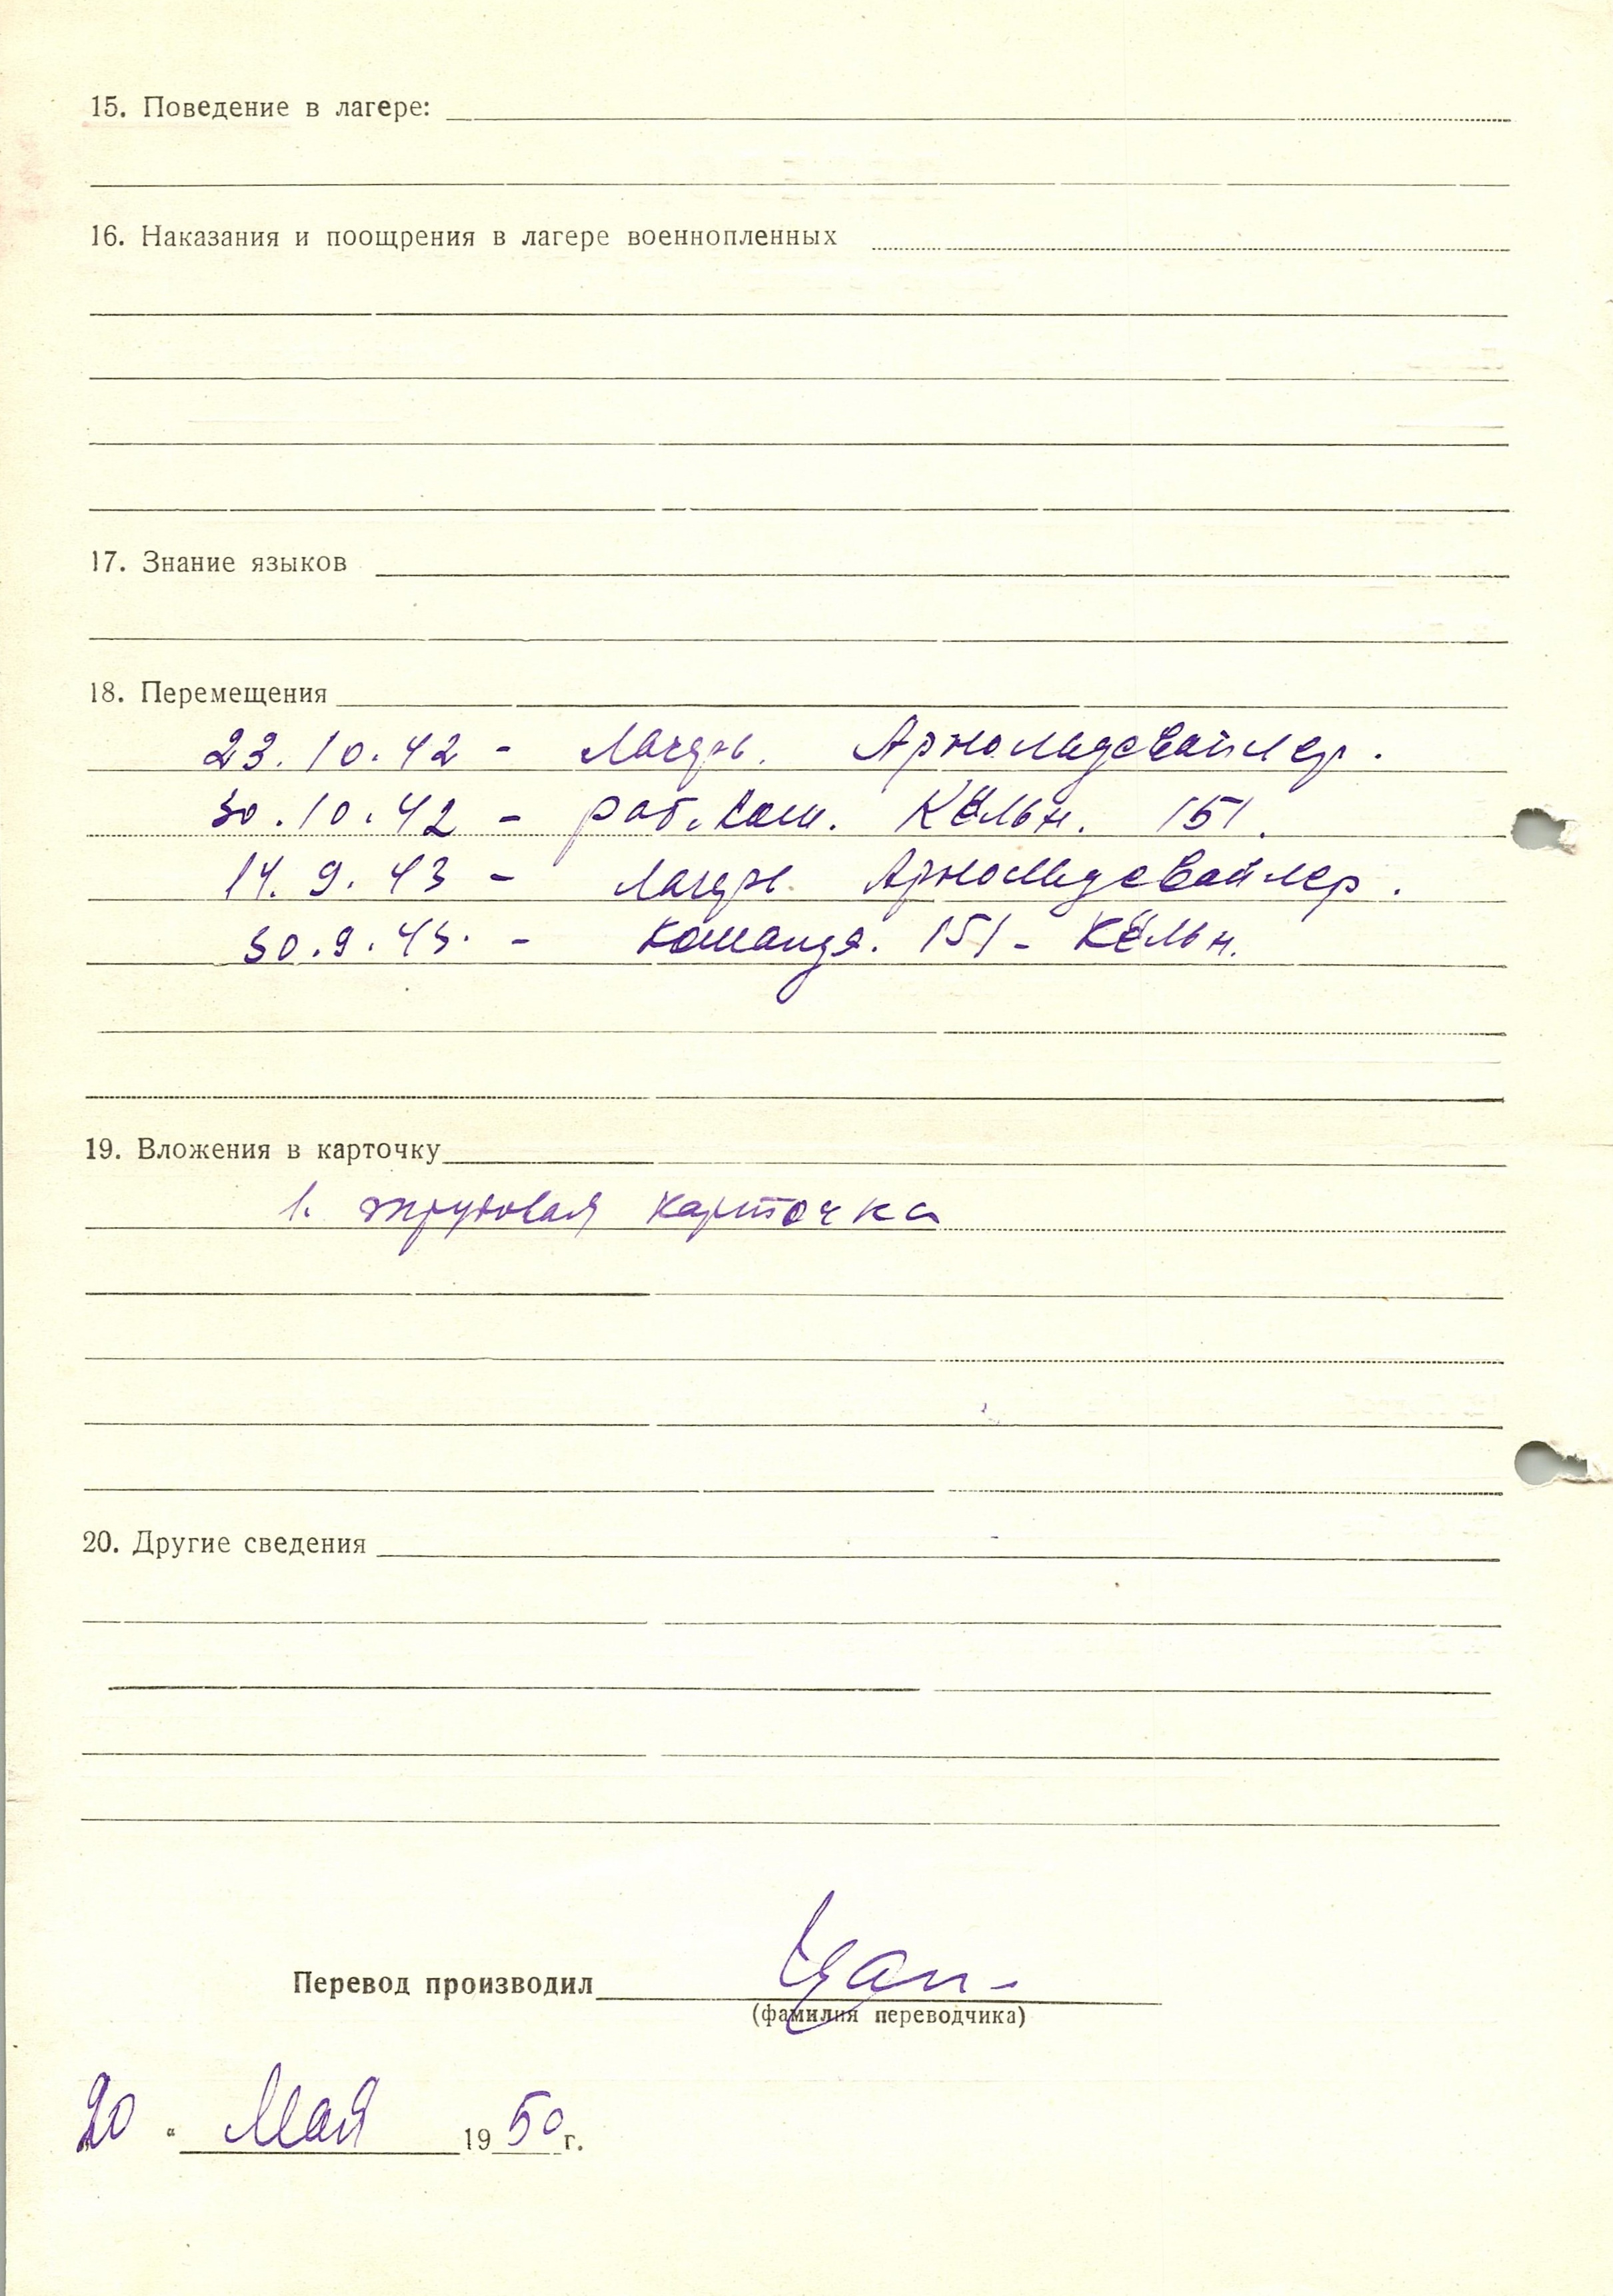 15. Поведение в лагере:
16. Наказания и поощрения в лагере военнопленных
17. Знание языков
18. Перемещения
23.10.42 - Лагерь. Арнольдсвайлер.
30.10.42 - раб. ком. Кёльн. 151.
14.9.43 - Лагерь Арнольдсвайлер.
30.9.43. - Команда. 151 - Кёльн.
19. Вложения в карточку
1. трудовая карточка
20. Другие сведения
Перевод производил
(фамилия переводчика)
20 " Мая 1950 г.